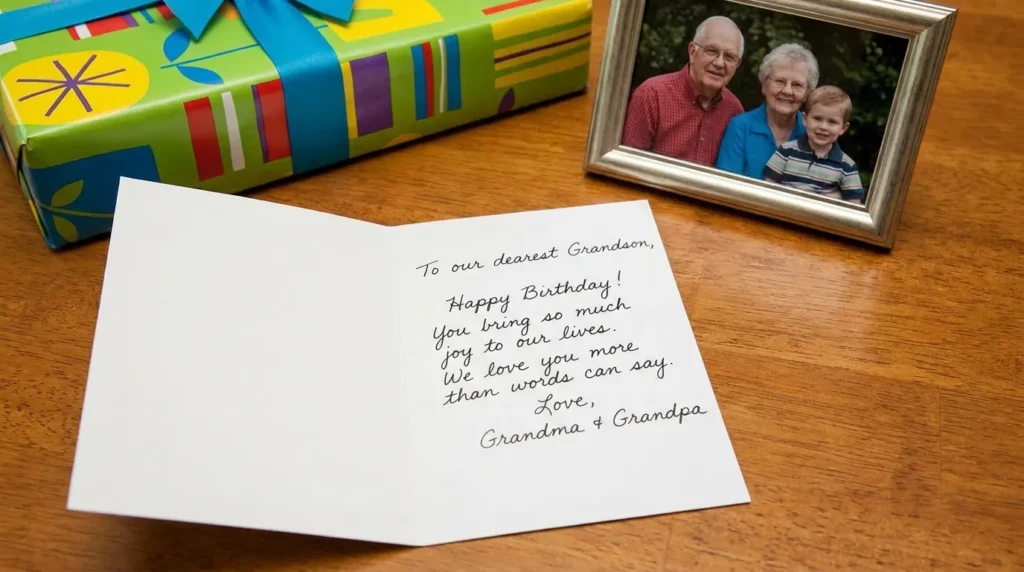 To our dearest Grandson,
Happy Birthday!
You bring so much
joy to our lives.
We love you more
than words can say.
Love,
Grandma & Grandpa